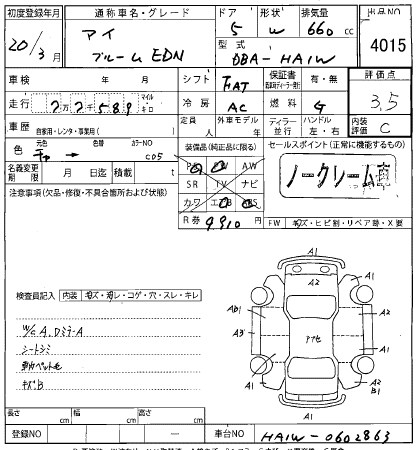 初度登録年月 通称車名・グレード ドア 形状 排気量 出品NO
20/3月 アイ 5 W 660 cc 4015
ブルーム EDN 型式 DBA-HA1W
車検 年 月 シフト FAT 保証書 有・無 評価点
走行 2万2千589 マイル・キロ 冷房 AC 燃料 G 3.5
車歴 自家用・レンタ・事業用( ) 定員 人 外車モデル 年 ディーラー 並行 ハンドル 左・右 内装評価 C
色 元色 色替 カラーNO C05 装備品(純正品に限る) セールスポイント(正常に機能するもの)
名義変更期限 月 日迄 積載 t AW
SR TV ナビ ノークレーム
注意事項(欠品・修復・不具合箇所および状態) カワ
R券 9,910円 FW キズ・ヒビ割・リペア跡・X要
A1
A1 A2 A1
検査員記入 内装 キズ・汚レ・コゲ・穴・スレ・キレ
AB1 A2
W/G A,Dミラ-A A3 A2
シートシミ
A1 A2
キバB B1
A1
長さ cm 幅 cm 高さ cm
登録NO 車台NO HA1W-0602863